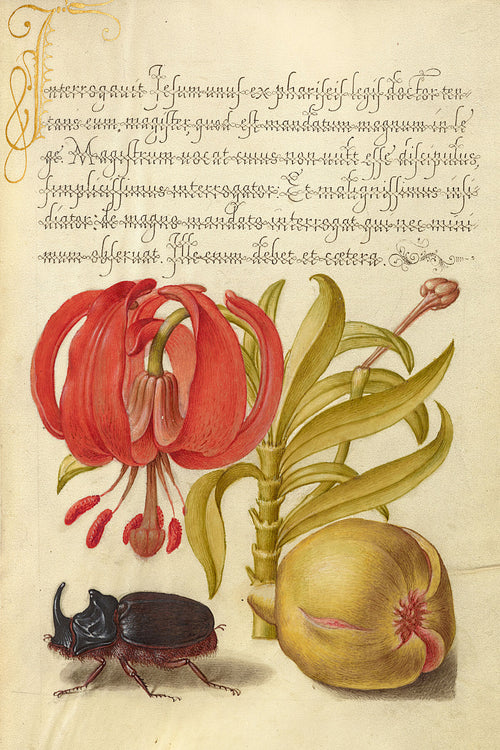 Interrogavit Jesum unus ex phariseis legis doctor ten
tans eum, magister, quod est mandatum magnum in le
ge. Magistrum vocat cuius non vult esse discipulus
simplicissimus interrogator. Et malignissimus insi
diator: de magno mandato interrogat qui nec mini
mum observat. Ille enim debet et cætera.